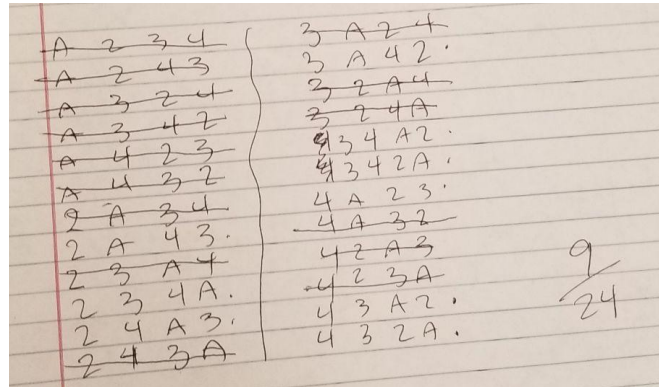 A 2 3 4
A 2 4 3
A 3 2 4
A 3 4 2
A 4 2 3
A 4 3 2
2 A 3 4
2 A 4 3.
2 3 A 4
2 3 4 A.
2 4 A 3.
2 4 3 A
3 A 2 4
3 A 4 2.
3 2 A 4
3 2 4 A
3 4 A 2.
3 4 2 A.
4 A 2 3.
4 A 3 2
4 2 A 3
4 2 3 A
4 3 A 2.
4 3 2 A.
9/24